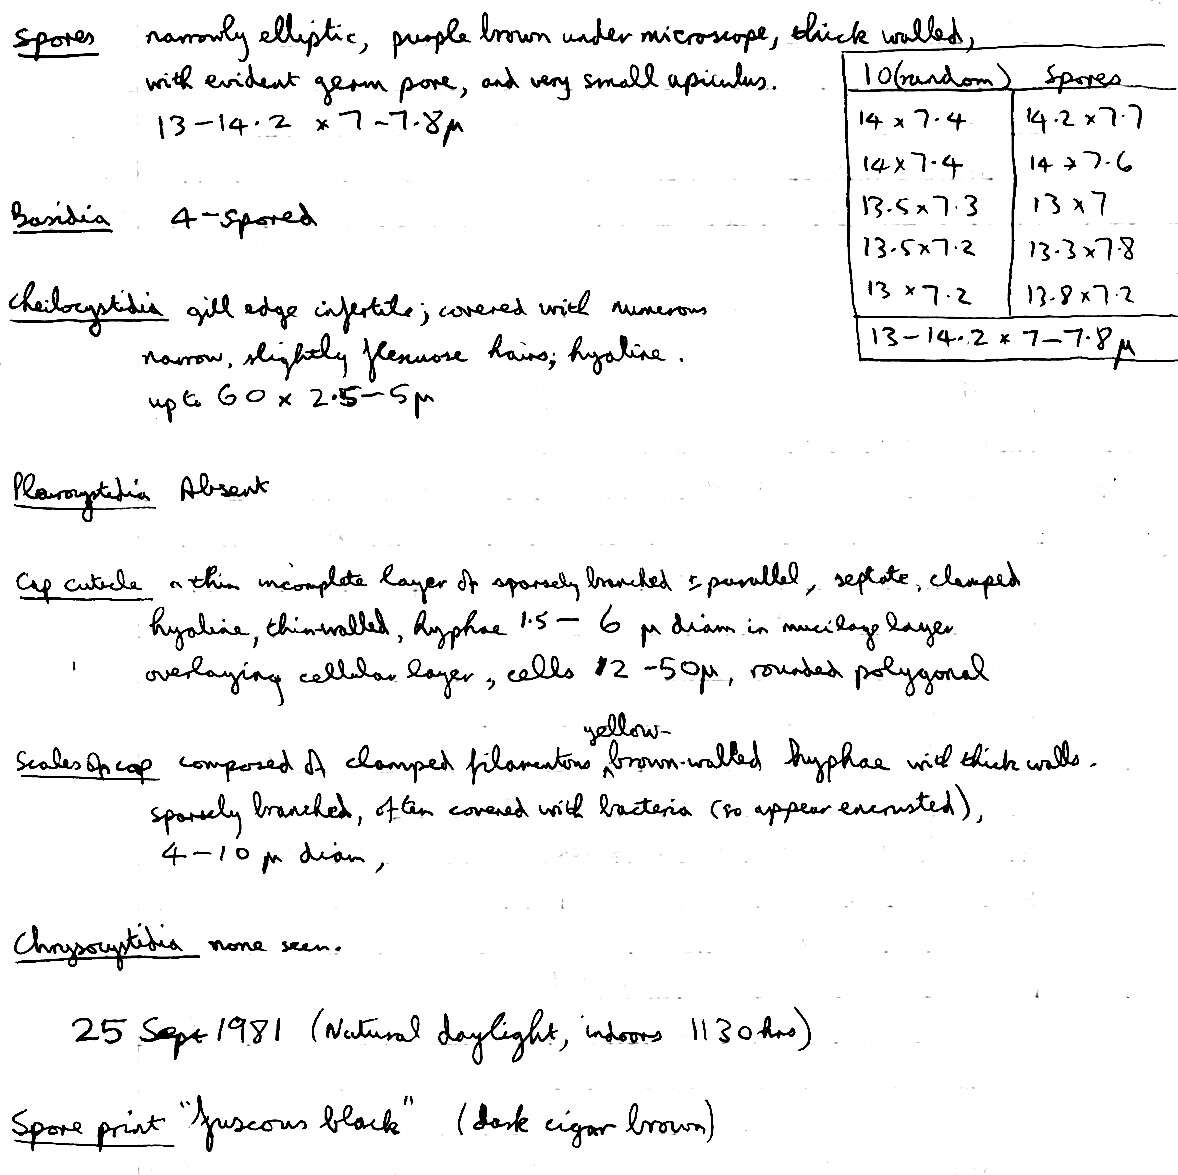 Spores narrowly elliptic, purple brown under microscope, thick walled,
with evident germ pore, and very small apiculus.
13-14.2 x 7-7.8μ
10 (random) Spores
14 x 7.4 14.2 x 7.7
14 x 7.4 14 x 7.6
13.5 x 7.3 13 x 7
13.5 x 7.2 13.3 x 7.8
13 x 7.2 13.8 x 7.2
13-14.2 x 7-7.8μ
Basidia 4-spored
Cheilocystidia gill edge infertile; covered with numerous
narrow, slightly flexuose hairs; hyaline.
up to 60 x 2.5-5μ
Pleurocystidia Absent
Cap cuticle a thin incomplete layer of sparsely branched ± parallel, septate, clamped
hyaline, thin-walled, hyphae 1.5 - 6 μ diam in mucilage layer
overlaying cellular layer, cells 12-50μ, rounded polygonal
Scales of cap composed of clamped filamentous yellow-brown-walled hyphae with thick walls.
sparsely branched, often covered with bacteria (so appear encrusted),
4-10 μ diam,
Chrysocystidia none seen.
25 Sept 1981 (Natural daylight, indoors 1130 hrs)
Spore print "fuscous black" (dark cigar brown)